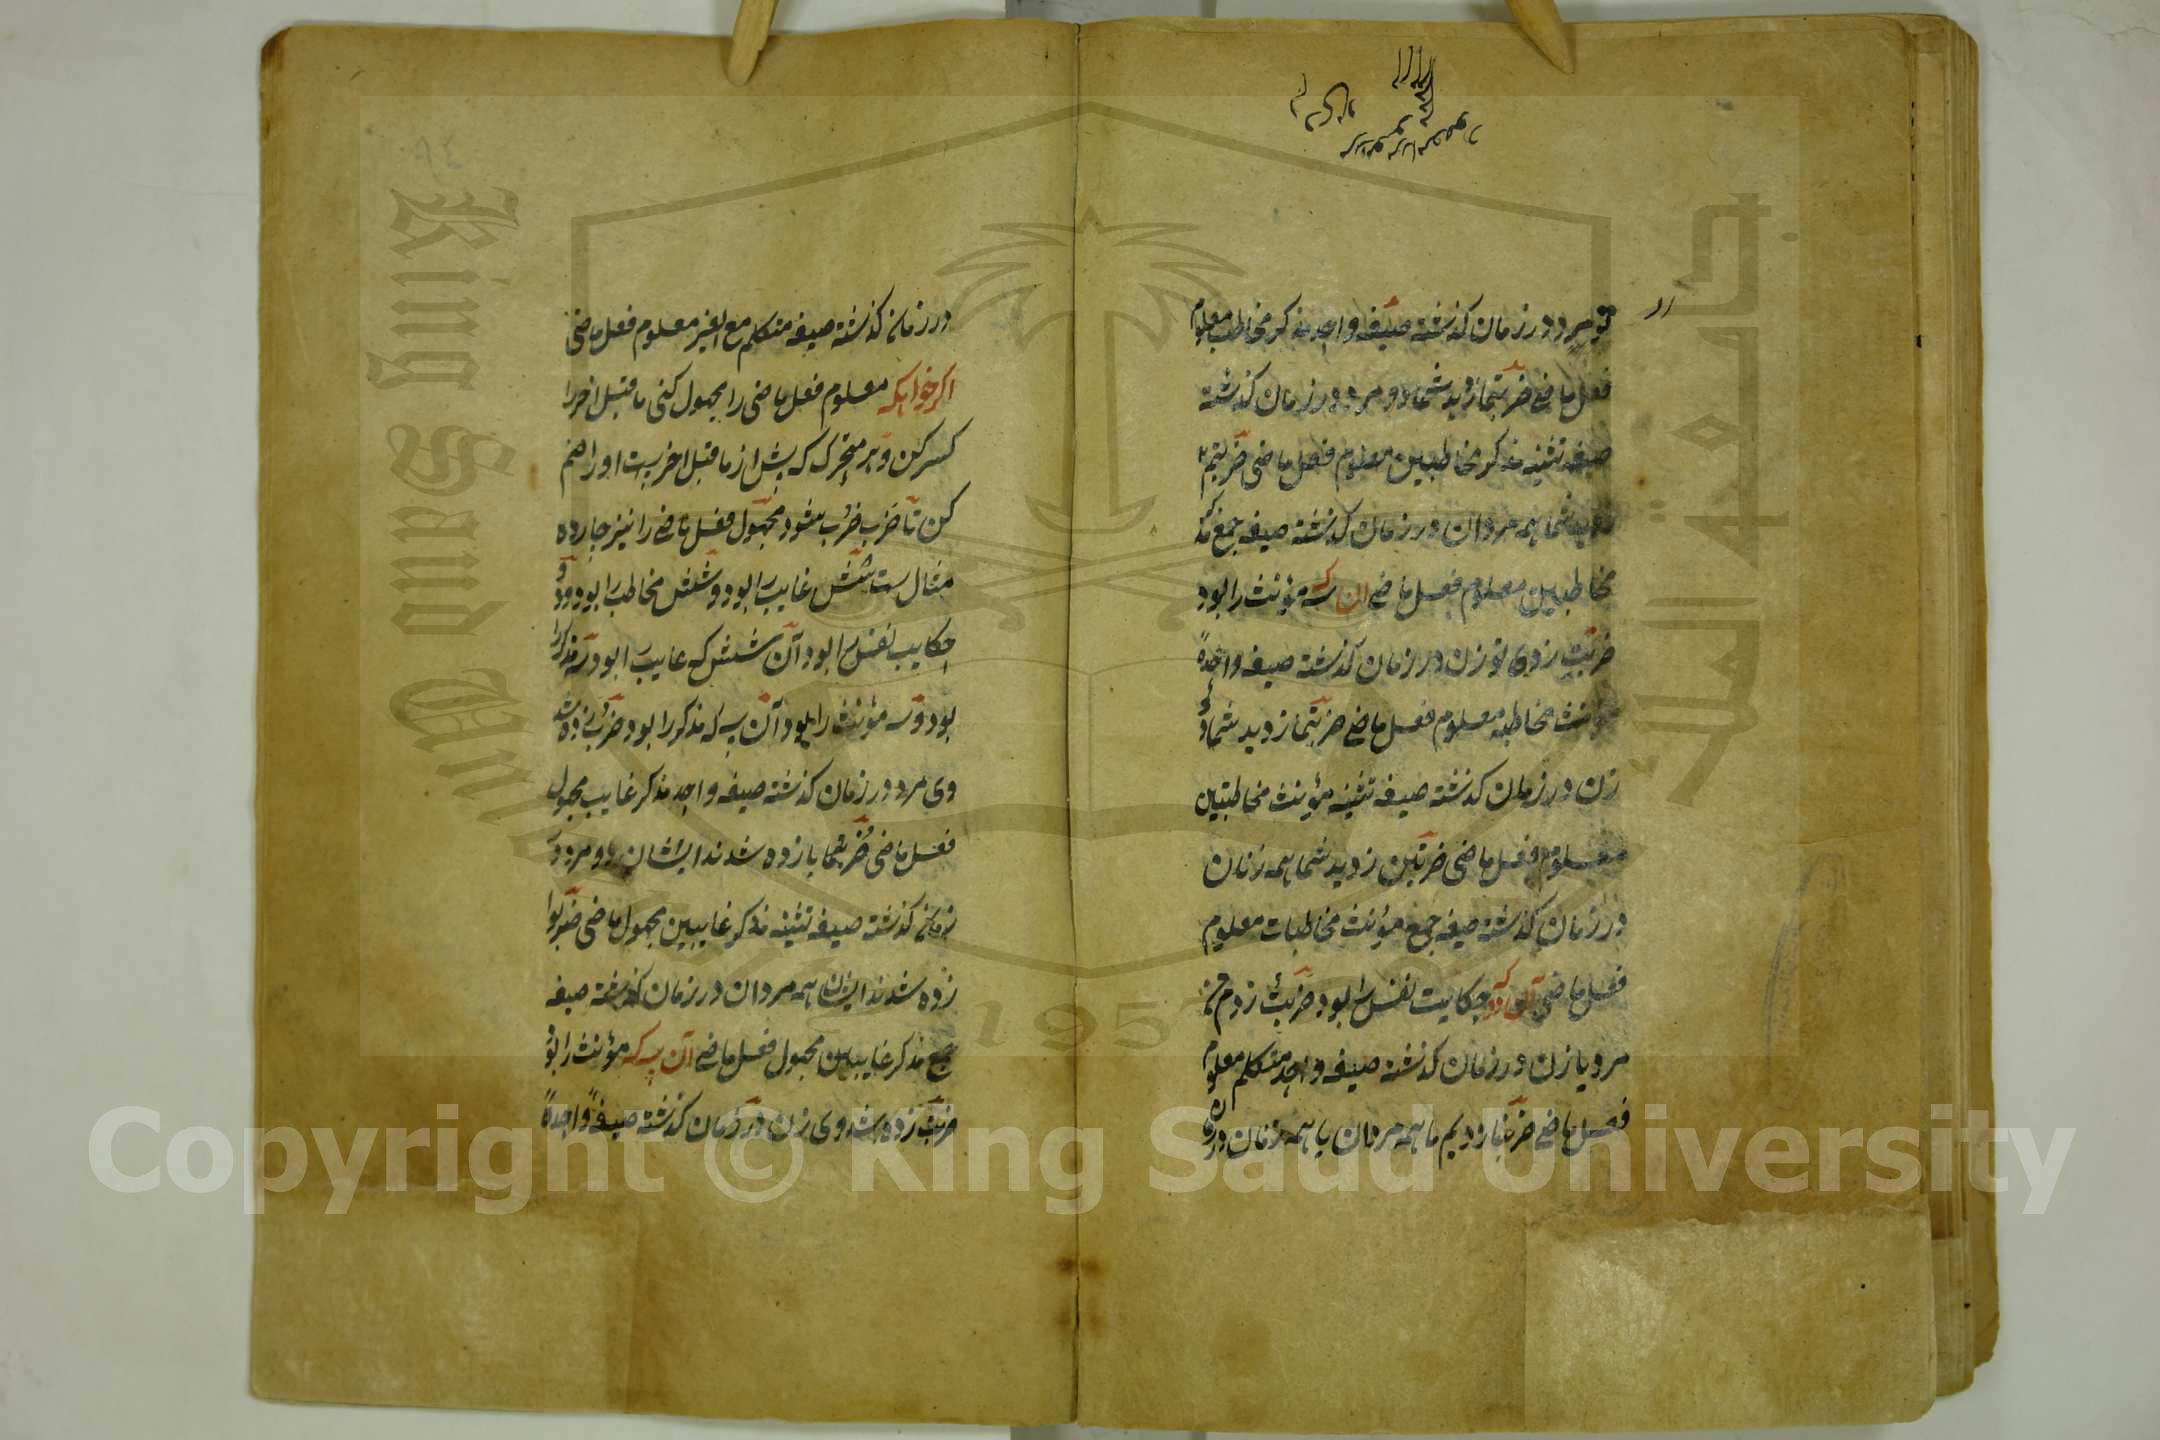 تو مرد در زمان گذشته صیغه واحد مذکر مخاطب معلوم
فعل ماضی ضربتما زدید شما دو مرد در زمان گذشته
صیغه تثنیه مذکر مخاطبین معلوم فعل ماضی ضربتم
زدید شما همه مردان در زمان گذشته صیغه جمع مذکر
مخاطبین معلوم فعل ماضی ان سه که مؤنث را بود
ضربت زدی تو زن در زمان گذشته صیغه واحدة
مؤنث مخاطبه معلوم فعل ماضی ضربتما زدید شما دو
زن در زمان گذشته صیغه تثنیه مؤنث مخاطبتین
معلوم فعل ماضی ضربتن زدید شما همه زنان
در زمان گذشته صیغه جمع مؤنث مخاطبات معلوم
فعل ماضی آن دو که حکایت نفس را بود ضربت زدم من
مرد یا زن در زمان گذشته صیغه واحد متکلم معلوم
فعل ماضی ضربنا زدیم ما همه مردان یا همه زنان
در زمانه گذشته صیغه متکلم مع الغیر معلوم فعل ماضی
اکر خواهیکه معلوم فعل ماضی را مجهول کنی ماقبل اخر را
کسر کن و هر متحرک که پیش از ماقبل اخرست او را ضم
کن تا ضرب ضرب شود مجهول فعل ماضی را نیز چارده
مثال ست شش غایب را بود و شش مخاطب را بود و دو
حکایب نفس را بود آن شش که غایب را بود سه مذکر را
بود و سه مؤنث را بود آن سه که مذکر را بود ضرب زده شد
وی مرد در زمان گذشته صیغه واحد مذکر غایب مجهول
فعل ماضی ضربتما با زده شدند ایشان دو مرد در
زمانه گذشته صیغه تثنیه مذکر غایبین مجهول ماضی ضربوا
زده شدند ایشان همه مردان در زمان گذشته صیغه
جمع مذکر غایبین مجهول فعل ماضی آن سه که مؤنث را بود
ضربت زده شد وی زن در زمان گذشته صیغة واحدة
Copyright © King Saud University
King Saud University
1957